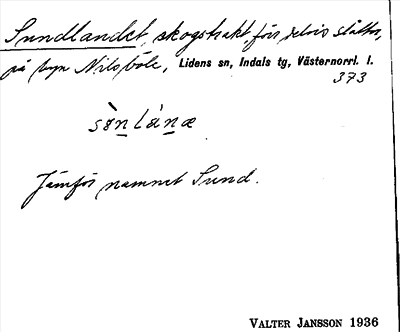 Sundlandet, skogstrakt, förr delvis slåtter,
på byn Nilsböle, Lidens sn, Indals tg, Västernorrl. l.
373
sø̀n lánæ
Jämför namnet Sund.
VALTER JANSSON 1936